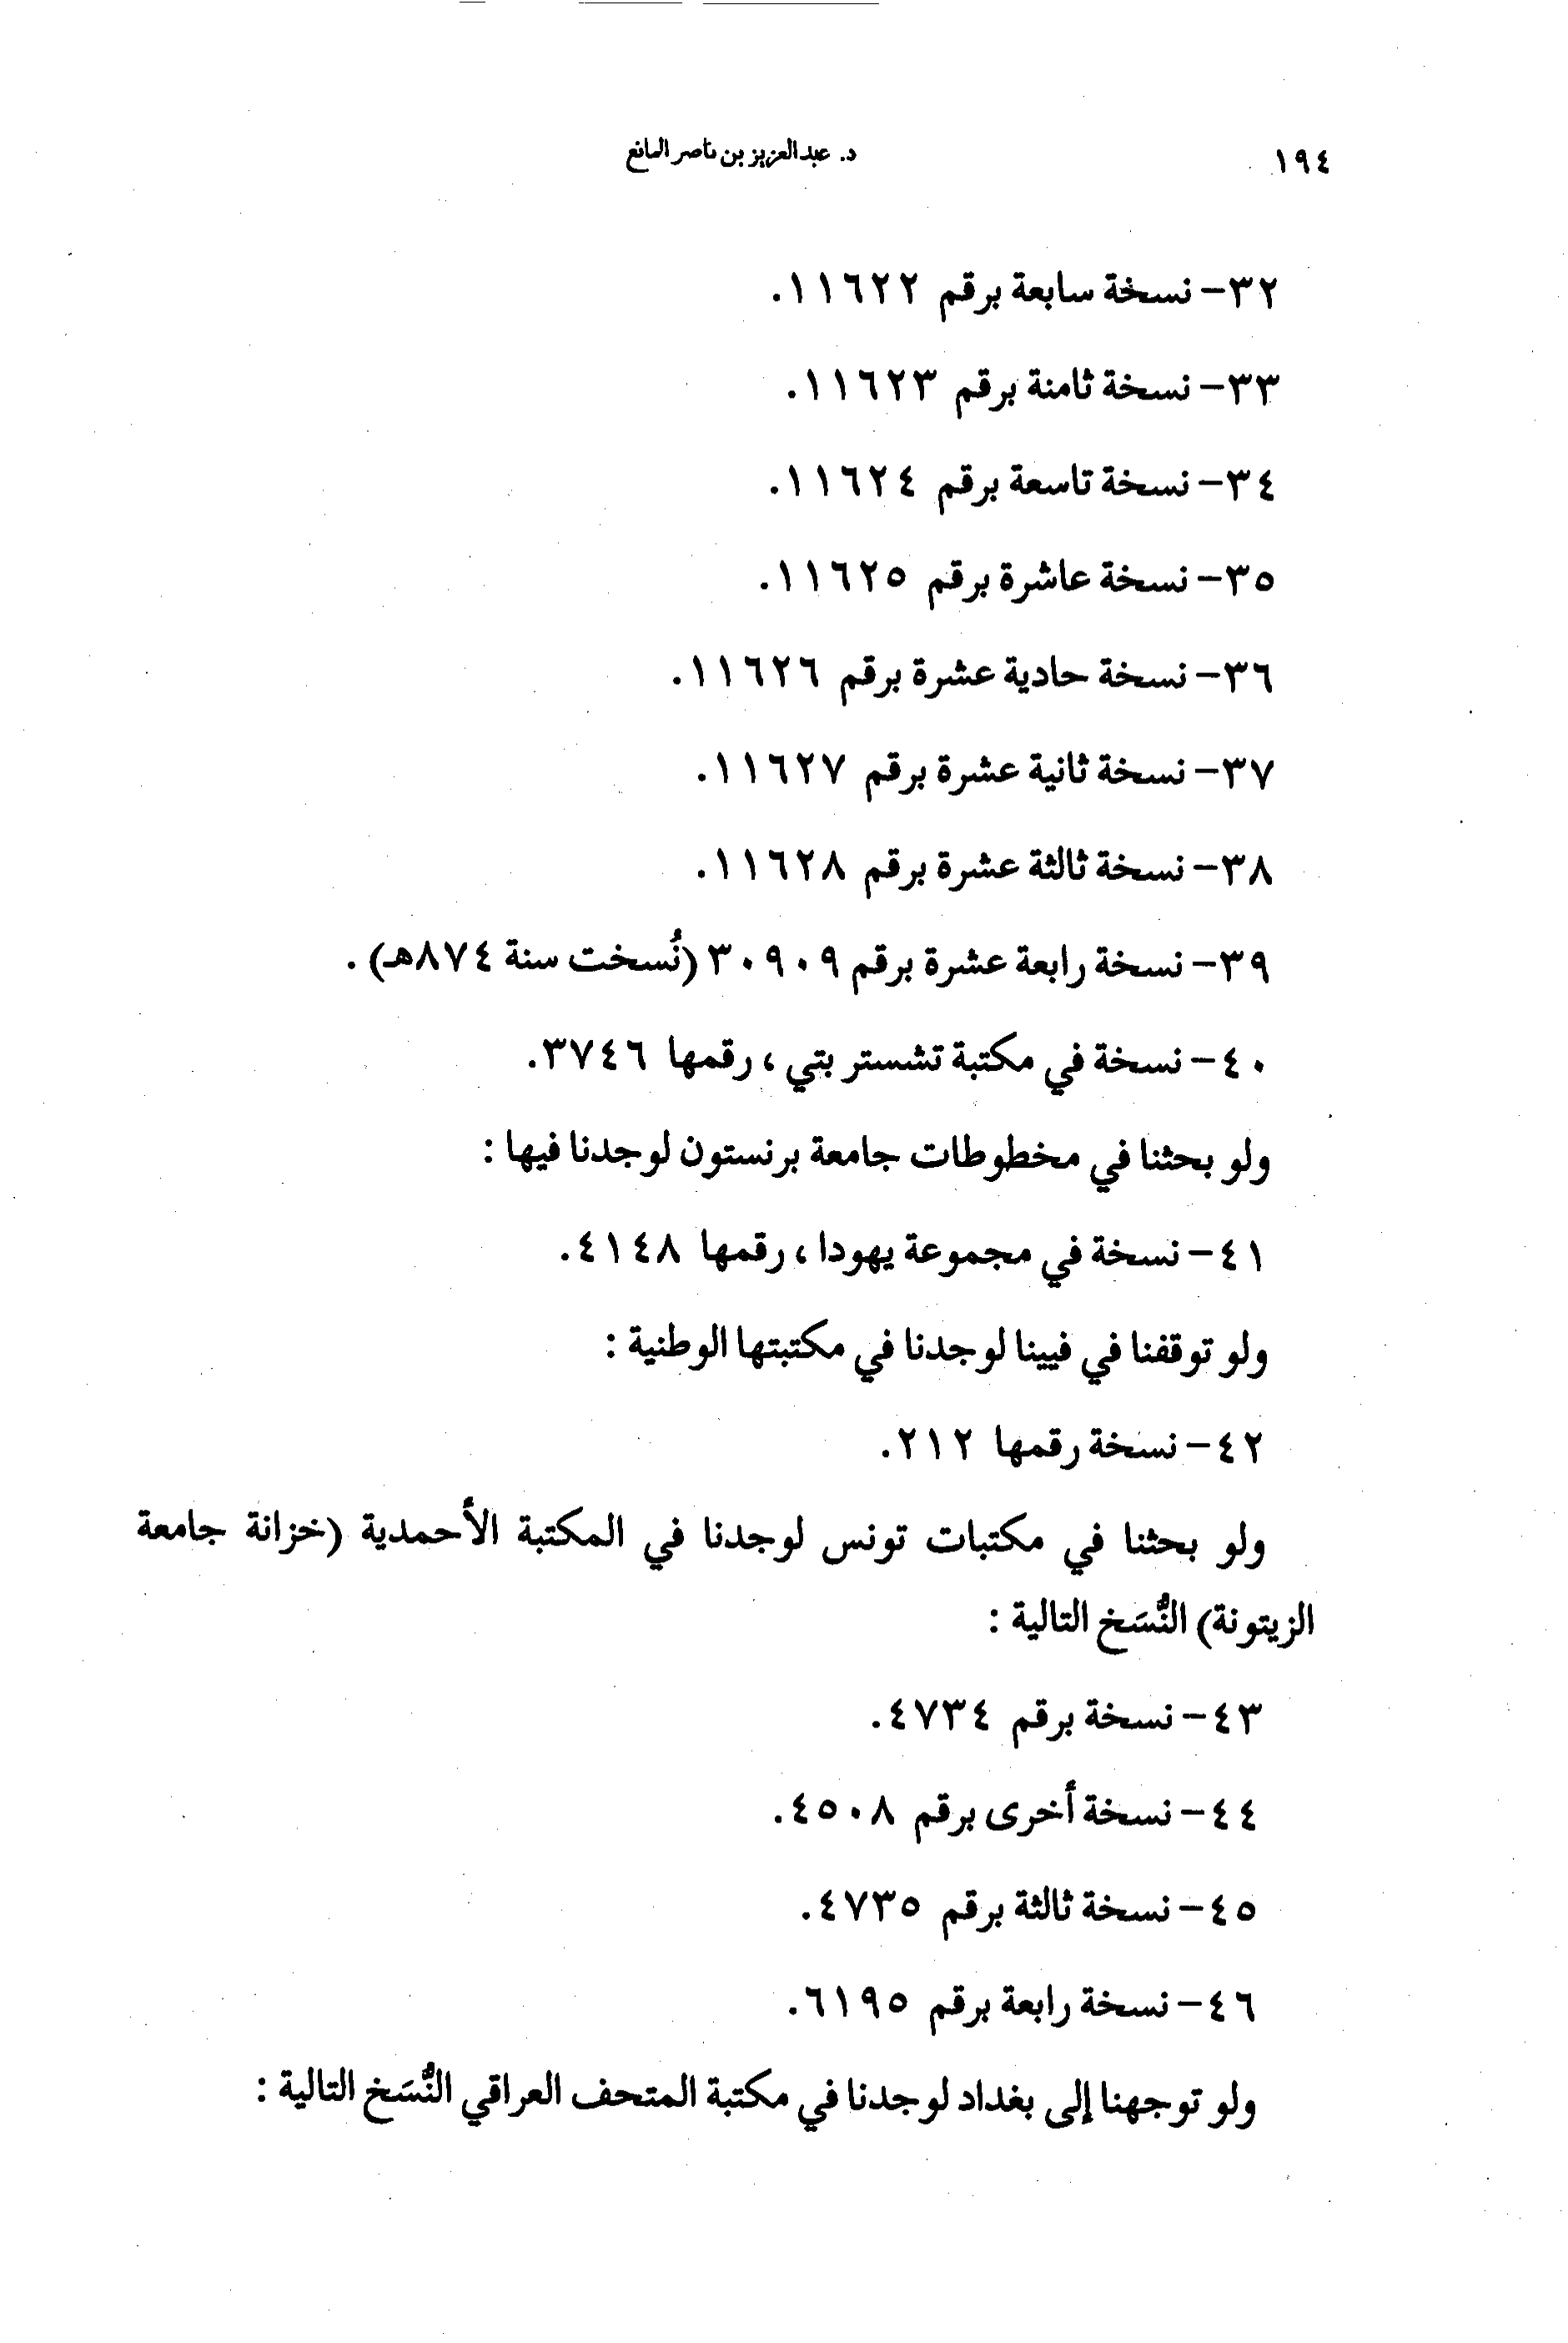 ١٩٤
د. عبدالعزيز بن ناصر المانع
٣٢- نسخة سابعة برقم ١١٦٢٢.
٣٣- نسخة ثامنة برقم ١١٦٢٣.
٣٤- نسخة تاسعة برقم ١١٦٢٤.
٣٥- نسخة عاشرة برقم ١١٦٢٥.
٣٦- نسخة حادية عشرة برقم ١١٦٢٦.
٣٧- نسخة ثانية عشرة برقم ١١٦٢٧.
٣٨- نسخة ثالثة عشرة برقم ١١٦٢٨.
٣٩- نسخة رابعة عشرة برقم ٣٠٩٠٩ (نُسخت سنة ٨٧٤هـ).
٤٠- نسخة في مكتبة تشستر بتي، رقمها ٣٧٤٦.
ولو بحثنا في مخطوطات جامعة برنستون لوجدنا فيها:
٤١- نسخة في مجموعة يهودا، رقمها ٤١٤٨.
ولو توقفنا في فيينا لوجدنا في مكتبتها الوطنية:
٤٢- نسخة رقمها ٢١٢.
ولو بحثنا في مكتبات تونس لوجدنا في المكتبة الأحمدية (خزانة جامعة
الزيتونة) النُّسَخ التالية:
٤٣- نسخة برقم ٤٧٣٤.
٤٤- نسخة أخرى برقم ٤٥٠٨.
٤٥- نسخة ثالثة برقم ٤٧٣٥.
٤٦- نسخة رابعة برقم ٦١٩٥.
ولو توجهنا إلى بغداد لوجدنا في مكتبة المتحف العراقي النُّسَخ التالية: